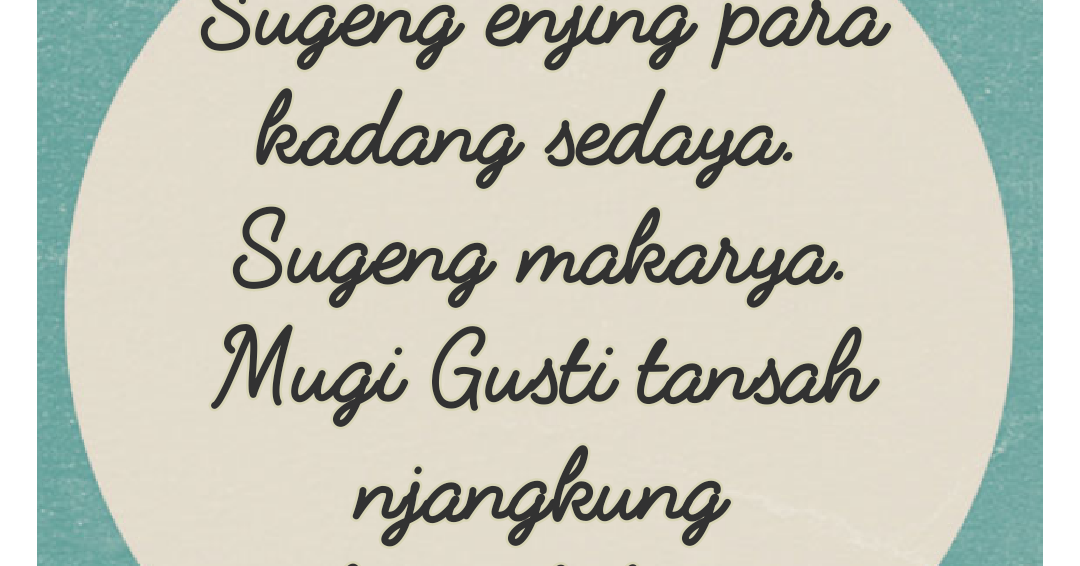 Sugeng enjing para
kadang sedaya.
Sugeng makarya.
Mugi Gusti tansah
njangkung